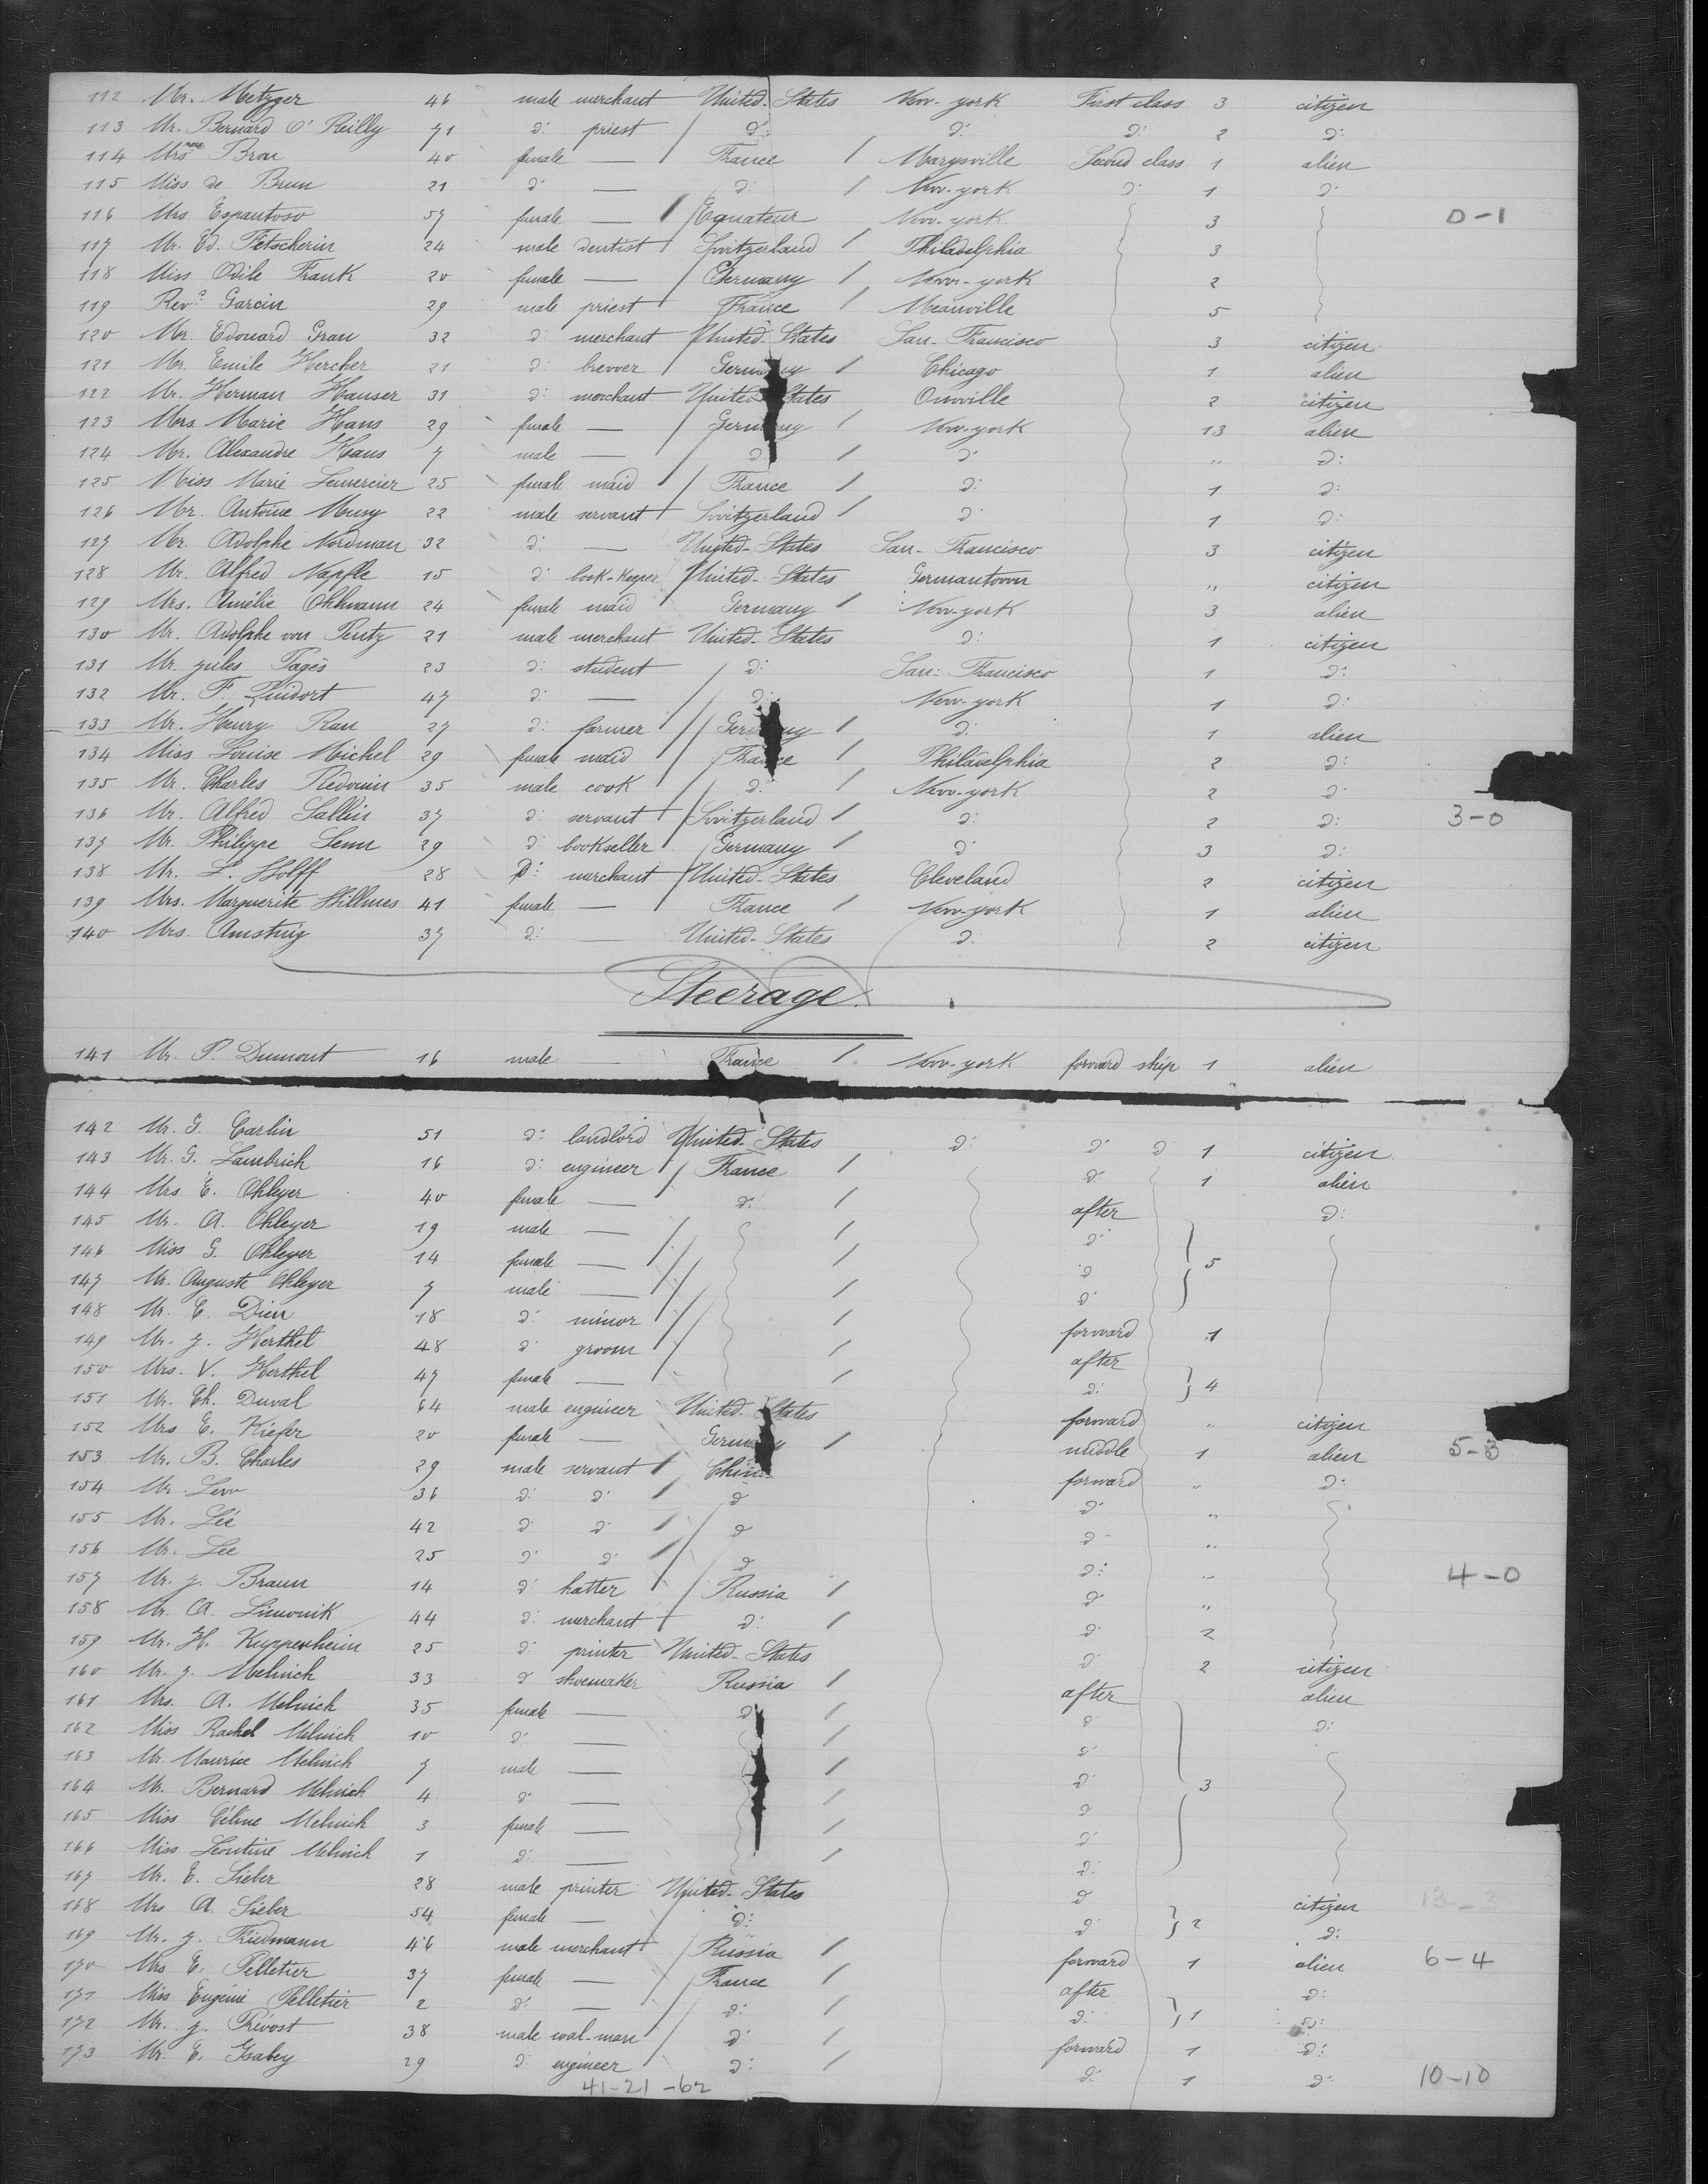 112 Mr. Metzger 46 male merchant United-States New-york First class 3 citizen
113 Mr. Bernard O'Reilly 71 d: priest d: d: d: 2 d:
114 Mrs Brou 40 female — France Marysville Second class 1 alien
115 Miss de Brun 21 d: — d: New-york d: 1 d:
116 Mrs Espantoso 57 female — Equateur New-york 3 0-1
117 Mr. Ed. Fetscherin 24 male dentist Switzerland Philadelphia 3
118 Miss Odile Frank 20 female — Germany New-york 2
119 Revd: Garcin 29 male priest France Meauville 5
120 Mr. Edouard Grau 32 d: merchant United-States San-Francisco 3 citizen
121 Mr. Emile Hercher 21 d: brewer Germany Chicago 1 alien
122 Mr. Herman Hauser 31 d: merchant United States Orwville 2 citizen
123 Mrs. Marie Hans 29 female — Germany New-york 13 alien
124 Mr. Alexandre Hans 7 male — d d: " d:
125 Miss Marie Lemercier 25 female maid France d: 1 d:
126 Mr. Antoine Musy 22 male servant Switzerland d: 1 d:
127 Mr. Adolphe Nordman 32 d: — United-States San-Francisco 3 citizen
128 Mr. Alfred Napfle 15 d: book-keeper United-States Germantown " citizen
129 Mrs. Amélie Ohlmann 24 female maid Germany New-york 3 alien
130 Mr. Adolphe von Pentz 21 male merchant United-States d: 1 citizen
131 Mr. jules Pagès 23 d: student d: San-Francisco 1 d:
132 Mr. F. 47 d: — d: New-york 1 d:
133 Mr. Henry Rau 27 d: farmer Germany d: 1 alien
134 Miss Louise Michel 29 female maid France Philadelphia 2 d:
135 Mr. Charles Redouin 35 male cook d: New-york 2 d:
136 Mr. Alfred Sallin 37 d: servant Switzerland d: 2 d: 3-0
137 Mr. Philippe Senn 29 d: bookseller Germany d: 3 d:
138 Mr. L. Wolff 28 D: merchant United-States Cleveland 2 citizen
139 Mrs. Marguerite Willmes 41 female — France New-york 1 alien
140 Mrs. Amstuig 37 d: — United-States d. 2 citizen
Steerage.
141 Mr. P. Dumont 16 male — France New-york forward ship 1 alien
142 Mr. G. Carlin 51 d: landlord United-States d: d: d 1 citizen
143 Mr. G. Lambrich 16 d: engineer France d: 1 alien
144 Mrs E. Ohleyer 40 female — d: after d:
145 Mr. A. Ohleyer 19 male — d:
146 Miss G. Ohleyer 14 female — d 5
147 Mr. Auguste Ohleyer 7 male — d:
148 Mr. E. Dien 18 d: minor forward 1
149 Mr. j. Herthel 48 d: groom after
150 Mrs. V. Herthel 47 female — d: 4
151 Mr. Ch. Duval 64 male engineer United-States forward " citizen
152 Mrs E. Kiefer 20 female — Germany middle 1 alien 5-3
153 Mr. B. Charles 29 male servant China forward " d:
154 Mr. Lew 36 d: d: d d:
155 Mr. Lée 42 d: d: d d "
156 Mr. Lee 25 d: d: d d: "
157 Mr. j. Braun 14 d: hatter Russia d " 4-0
158 Mr. A. Limonik 44 d: merchant d: d: 2
159 Mr. H. Kuppenheim 25 d: printer United-States d: 2 citizen
160 Mr. j. Melnich 33 d shoemaker Russia after alien
161 Mrs. A. Melnich 35 female — d d d:
162 Miss Rachel Melnich 10 d: — d:
163 Mr Maurice Melnich 7 male — d:
164 Mr. Bernard Melnich 4 d: — d 3
165 Miss Céline Melnich 3 female — d:
166 Miss Léontine Melnich 1 d: — d:
167 Mr. E. Sieber 28 male printer United-States d citizen
168 Mrs A. Sieber 54 female — d: d: 2 d:
169 Mr. j. Friedmann 46 male merchant Russia forward 1 alien 6-4
170 Mrs E. Pelletier 37 female — France after d:
171 Miss Eugénie Pelletier 2 d: — d: d: 1 d:
172 Mr. j. Prévost 38 male coal-man d: forward 1 d:
173 Mr. E. Isabey 29 d: engineer d: d: 1 d: 10-10
41-21-62